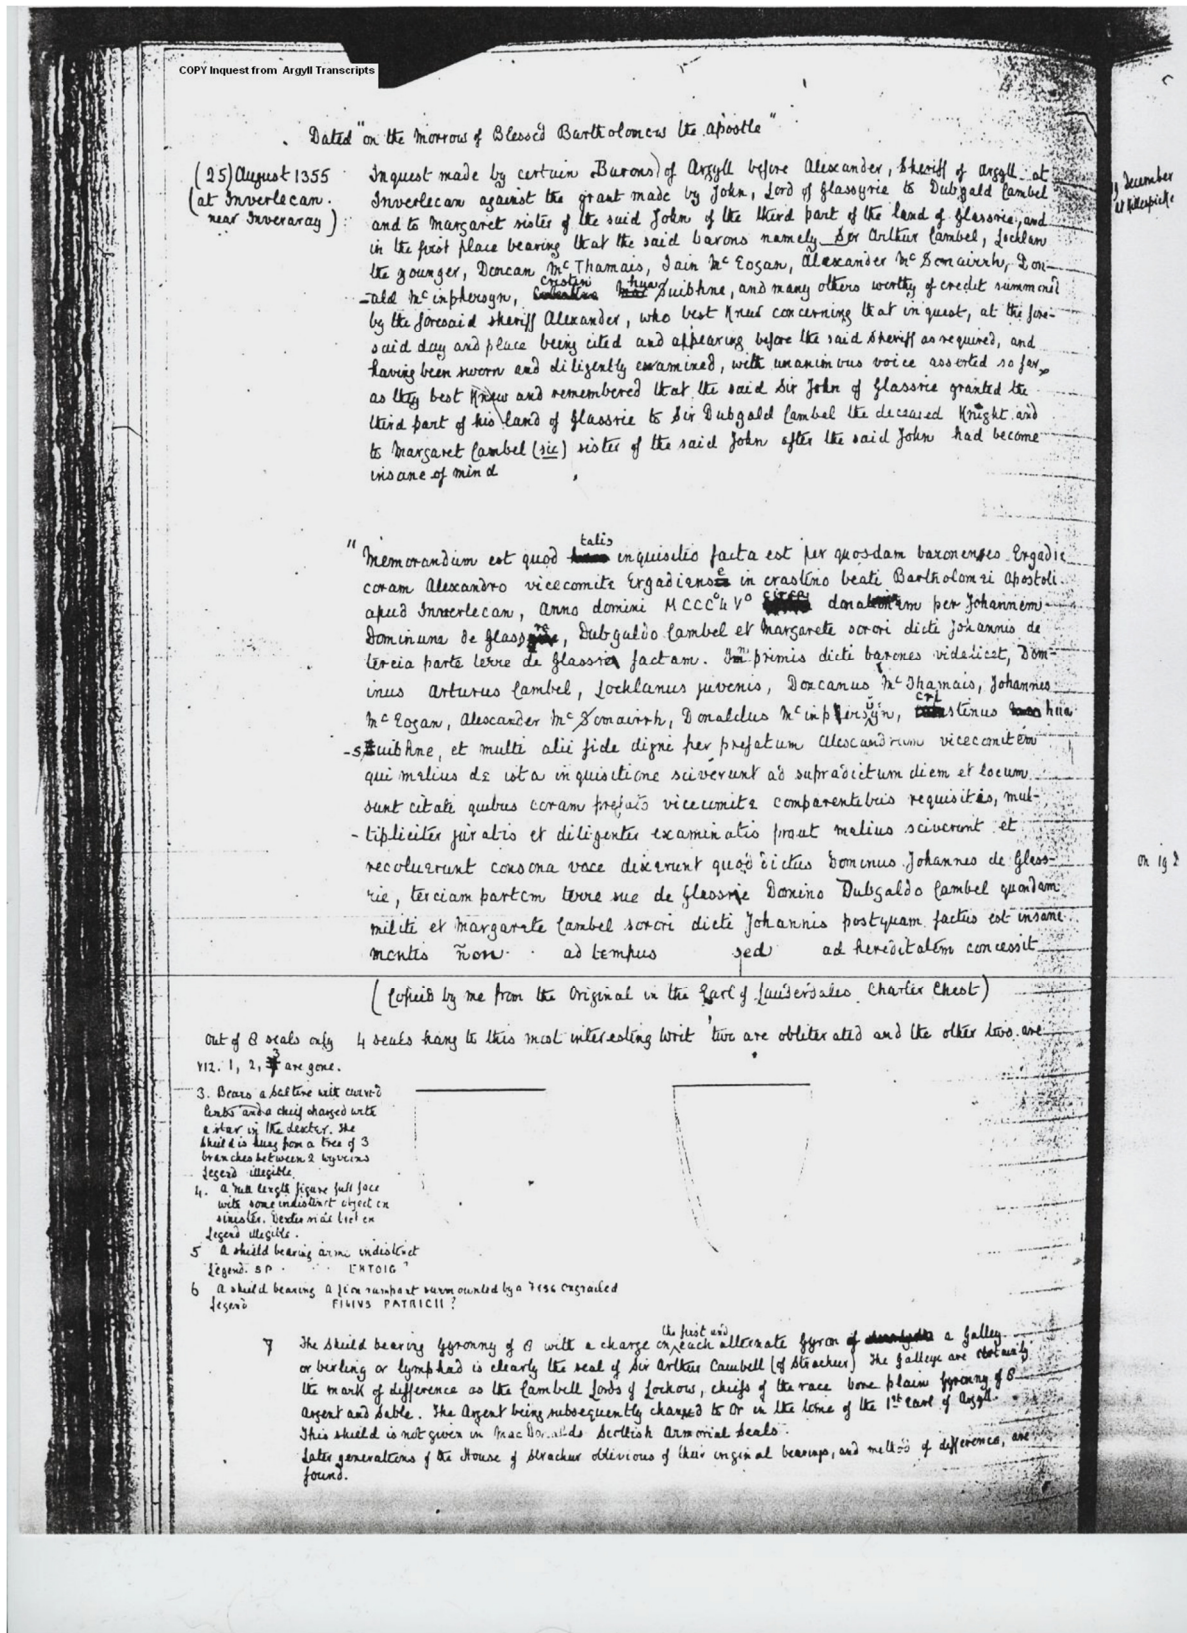 COPY Inquest from Argyll Transcripts
Dated "on the Morrow of Blessed Bartholomew the Apostle"
(25) August 1355
(at Inverlecan.
near Inveraray)
Inquest made by certain Barons of Argyll before Alexander, Sheriff of Argyll at
Inverlecan against the grant made by John, Lord of Glassyrie to Dubgald Cambel
and to Margaret sister of the said John of the third part of the land of Glassrie, and
in the first place bearing that the said barons namely Sir Arthur Cambel, Lochlan
the younger, Doncan Mc Thamais, Iain Mc Eogan, Alexander Mc Somairrh, Don-
-ald Mc inphersyn, cristin hua Suibhne, and many others worthy of credit summoned
by the foresaid sheriff Alexander, who best knew concerning that inquest, at the fore-
said day and place being cited and appearing before the said Sheriff as required, and
having been sworn and diligently examined, with unanimous voice asserted so far
as they best knew and remembered that the said Sir John of Glassrie granted the
third part of his land of Glassrie to Sir Dubgald Cambel the deceased Knight and
to Margaret Cambel (sic) sister of the said John after the said John had become
insane of mind
December
"Memorandum est quod talis inquisitio facta est per quosdam baronenses Ergadie
coram Alexandro vicecomite Ergadiense in crastino beati Bartholomei Apostoli
apud Inverlecan, Anno domini MCCCo Lo Vo circa donationem per Johannem
Dominum de Glassre, Dubgaldo Cambel et Margarete sorori dicte Johannis de
tercia parte terre de Glassre factam. Imprimis dicti barones videlicet, Dom-
inus Arturus Cambel, Lochlanus juvenis, Doncanus Mc Thamais, Johannes
Mc Eogan, Alexander Mc Somairrh, Donaldus Mc inphersyn, cristinus hua
-Suibhne, et multi alii fide digni per prefatum Alexandrum vicecomitem
qui melius de ista inquisitione sciverunt ad supradictum diem et locum
sunt citati quibus coram prefato vicecomite comparentibus requisitis, mul-
-tipliciter juratis et diligenter examinatis prout melius sciverunt et
recoluerunt consona voce dixerunt quod dictus Dominus Johannes de Glass-
rie, terciam partem terre sue de Glassrie Domino Dubgaldo Cambel quondam
militi et Margarete Cambel sorori dicti Johannis postquam factus est insane
mentis non ad tempus sed ad hereditatem concessit
(Copied by me from the Original in the Earl of Lauderdales Charter Chest)
Out of 8 seals only 4 seals hang to this most interesting writ two are obliterated and the other two are
viz. 1, 2, 3 are gone.
3. Bears a saltire with curved
limbs and a chief charged with
a star in the dexter. The
shield is hung from a tree of 3
branches between 2 wyverns
Legend illegible
4. A full length figure full face
with some indistinct object on
sinister.
Legend illegible.
5 A shield bearing arms indistinct
Legend. SP . . . ENTOIG?
6 A shield bearing a lion rampant surmounted by a fess engrailed
Legend FILIVS PATRICII?
7 The Shield bearing Gyronny of 8 with a charge on the first and each alternate Gyron a Galley
or birling or lymphad is clearly the seal of Sir Arthur Cambell (of Strachur) The Galleys are certainly
the mark of difference as the Cambell Lords of Lochow, chiefs of the race bore plain Gyronny of 8
Argent and Sable. The Argent being subsequently changed to Or in the time of the 1st Earl of Argyll.
This shield is not given in MacDonalds Scottish Armorial Seals.
Later generations of the House of Strachur oblivious of their original bearings, and method of difference, are
found.